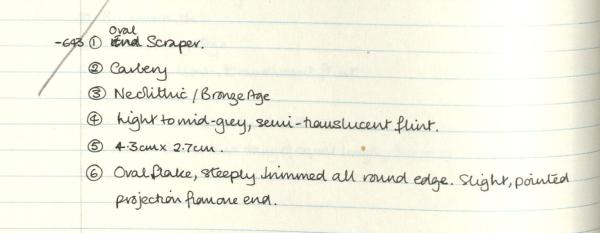 Oval
-643 ① End Scraper.
② Carbery
③ Neolithic / Bronze Age
④ Light to mid-grey, semi-translucent flint.
⑤ 4.3cm x 2.7cm.
⑥ Oval flake, steeply trimmed all round edge. Slight, pointed
projection from one end.